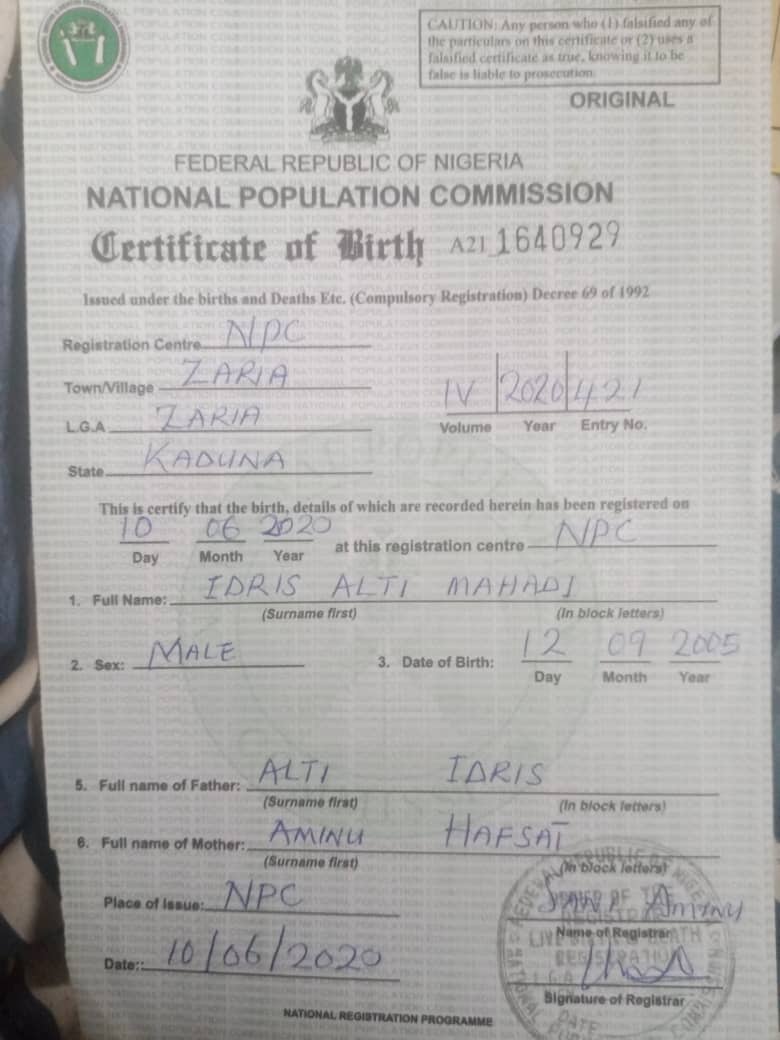 CAUTION: Any person who (1) falsified any of
the particulars on this certificate or (2) uses a
falsified certificate as true, knowing it to be
false is liable to prosecution.
ORIGINAL
FEDERAL REPUBLIC OF NIGERIA
NATIONAL POPULATION COMMISSION
Certificate of Birth A21 1640929
Issued under the births and Deaths Etc. (Compulsory Registration) Decree 69 of 1992
Registration Centre NPC
Town/Village ZARIA
L.G.A ZARIA
State KADUNA
IV 2020 421
Volume Year Entry No.
This is certify that the birth, details of which are recorded herein has been registered on
10 06 2020
Day Month Year
at this registration centre NPC
1. Full Name: IDRIS ALTI MAHADI
(Surname first) (In block letters)
2. Sex: MALE
3. Date of Birth: 12 09 2005
Day Month Year
5. Full name of Father: ALTI IDRIS
(Surname first) (In block letters)
6. Full name of Mother: AMINU HAFSAT
(Surname first) (In block letters)
Place of Issue: NPC
Aminu
Name of Registrar
Date:: 10/06/2020
Signature of Registrar
NATIONAL REGISTRATION PROGRAMME